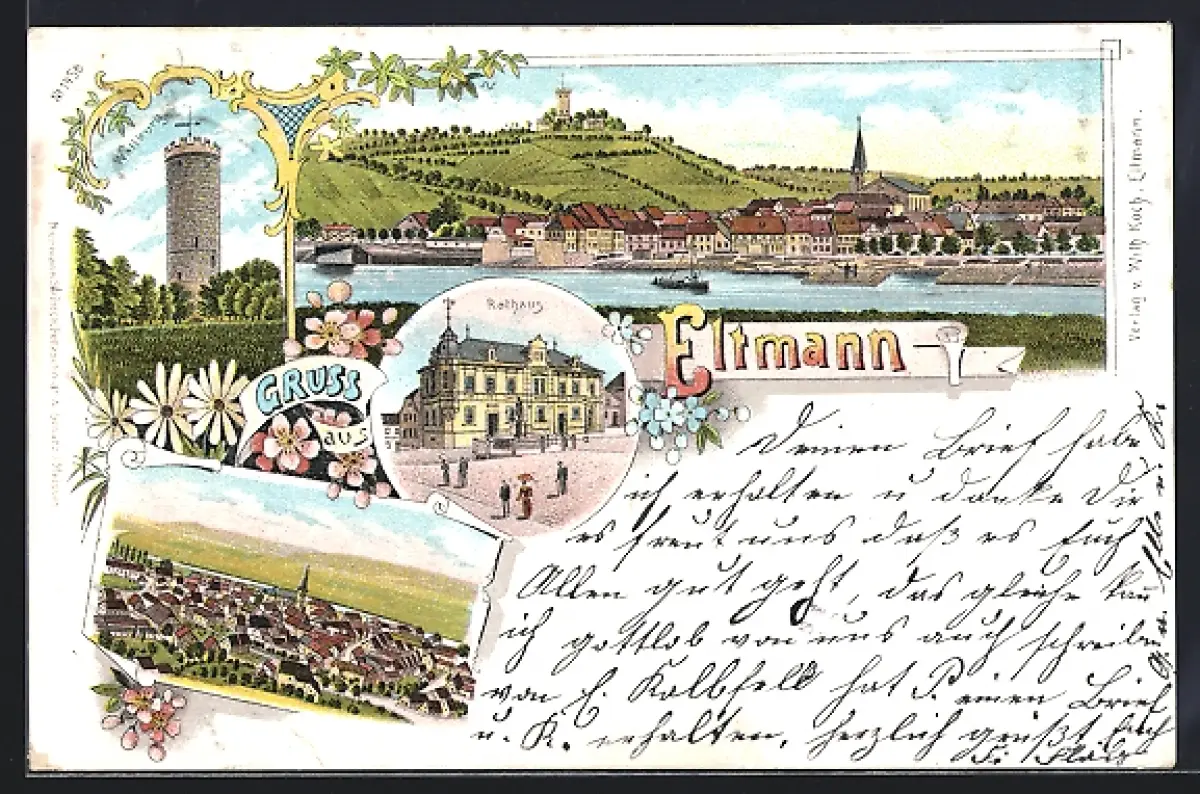 Wallburg
Rathaus
GRUSS
aus
Eltmann
Verlag v. Wilh. Koch, Eltmann.
Deinen Brief habe
ich erhalten u danke Dir
es freut uns daß es Euch
Allen gut geht, das gleiche kann
ich gottlob von uns auch schreiben
von E. Kalbfeld hat P. einen Brief
u. K. erhalten, herzlich grüßt Euch